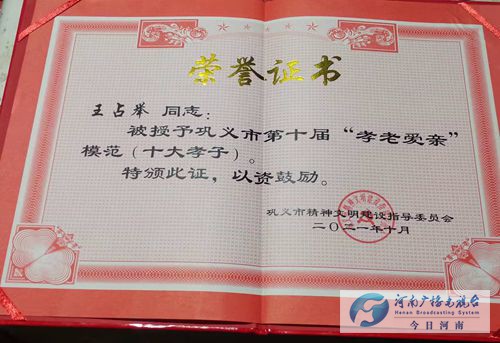 荣誉证书
王占举 同志：
被授予巩义市第十届“孝老爱亲”
模范（十大孝子）。
特颁此证，以资鼓励。
巩义市精神文明建设指导委员会
二〇二一年十月
河南广播电视台
Henan Broadcasting System
今日河南